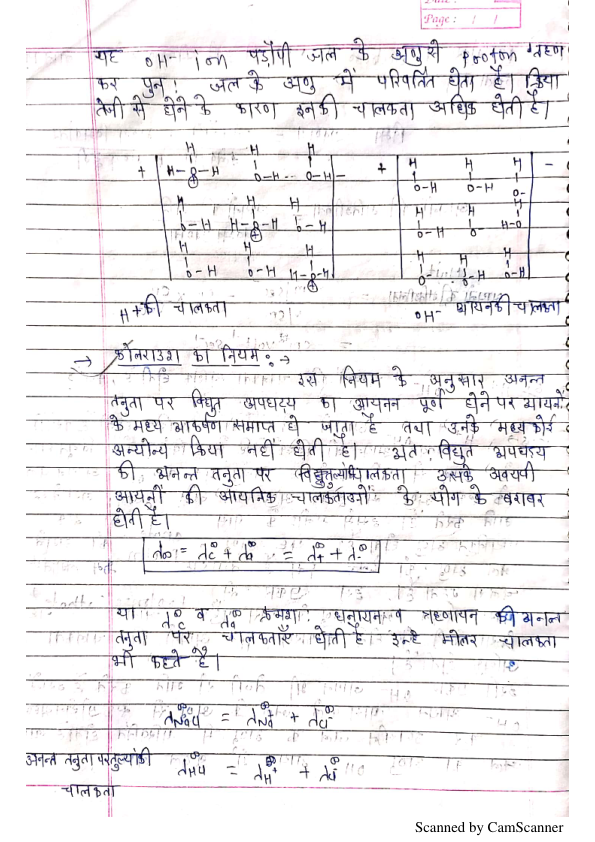 Page: / /
यह OH- ion पडोंपी जल के अणु से proton ग्रहण
कर पुन: जल के अणु में परिवर्तित होता है। क्रिया
तेजी से होने के कारण इनकी चालकता अधिक होती है।
H H H H H H
+ H-O-H O-H... O-H- + O-H O-H O- -
⊕
H H H H H
O-H H-O-H O-H O-H O- H-O
⊕
H H H H H
O-H O-H H-O-H O-H O-H O-H
⊕
H+की चालकता OH- आयनकी चालकता
→ कोलराउश का नियम:→
इस नियम के अनुसार अनन्त
तनुता पर विधुत अपघट्य का आयनन पूर्ण होने पर आयनों
के मध्य आकर्षण समाप्त हो जाता है तथा उनके मध्य कोई
अन्योन्य क्रिया नहीं होती है। अत: विधुत अपघट्य
की अनन्त तनुता पर चालकता उसके अवयवी
आयनों की आयनिक चालकताओं के योग के बराबर
होती है।
λ∞ = λc∞ + λa∞ = λ+∞ + λ-∞
या λc∞ व λa∞ क्रमश: धनायन व ऋणायन की अनन्त
तनुता पर चालकताएँ होती है इन्हे मोलर चालकता
भी कहते है।
λNaCl∞ = λNa+∞ + λCl-∞
अनन्त तनुता पर तुल्यांकी λHCl∞ = λH+∞ + λCl-∞
चालकता
Scanned by CamScanner